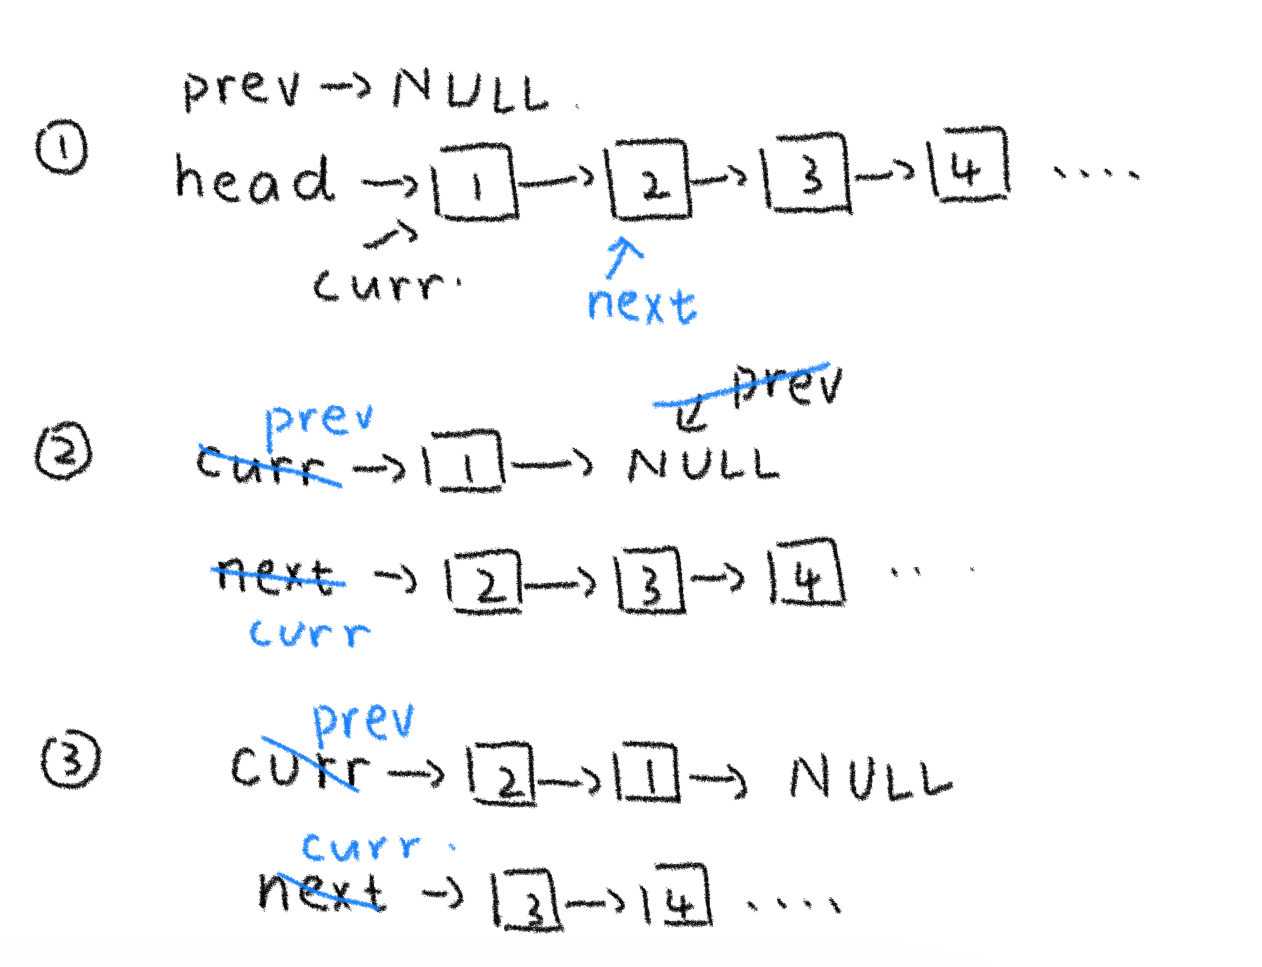 prev → NULL
① head → 1 → 2 → 3 → 4 ....
curr.
next
prev
prev
② curr → 1 → NULL
next → 2 → 3 → 4 ...
curr
prev
③ curr → 2 → 1 → NULL
curr.
next → 3 → 4 ....